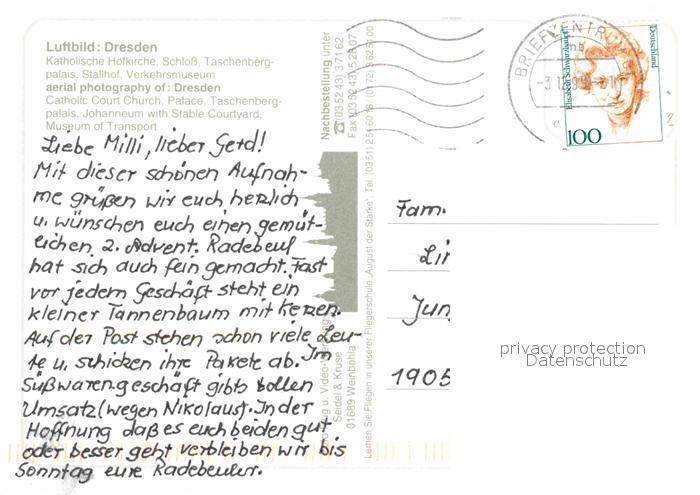 Luftbild: Dresden
Katholische Hofkirche, Schloß, Taschenberg-
palais, Stallhof, Verkehrsmuseum
aerial photography of: Dresden
Catholic Court Church, Palace, Taschenberg-
palais, Johanneum with Stable Courtyard,
Museum of Transport
Liebe Milli, lieber Gerd!
Mit dieser schönen Aufnah-
me grüßen wir euch herzlich
u. wünschen euch einen gemüt-
lichen 2. Advent. Radebeul
hat sich auch fein gemacht. Fast
vor jedem Geschäft steht ein
kleiner Tannenbaum mit Kerzen.
Auf der Post stehen schon viele Leu-
te u. schicken ihre Pakete ab. Im
Süßwarengeschäft gibts tollen
Umsatz (wegen Nikolaus). In der
Hoffnung daß es euch beiden gut
oder besser geht verbleiben wir bis
Sonntag eure Radebeuler.
Nachbestellung unter
Seidel & Kruse
01689 Weinböhla
Lernen Sie Fliegen in unserer Fliegerschule „August der Starke“ Tel.
BRIEFZENTRUM
Elisabeth Schwarzhaupt
Deutschland
100
Fam.
Li
Jun
1905
privacy protection
Datenschutz